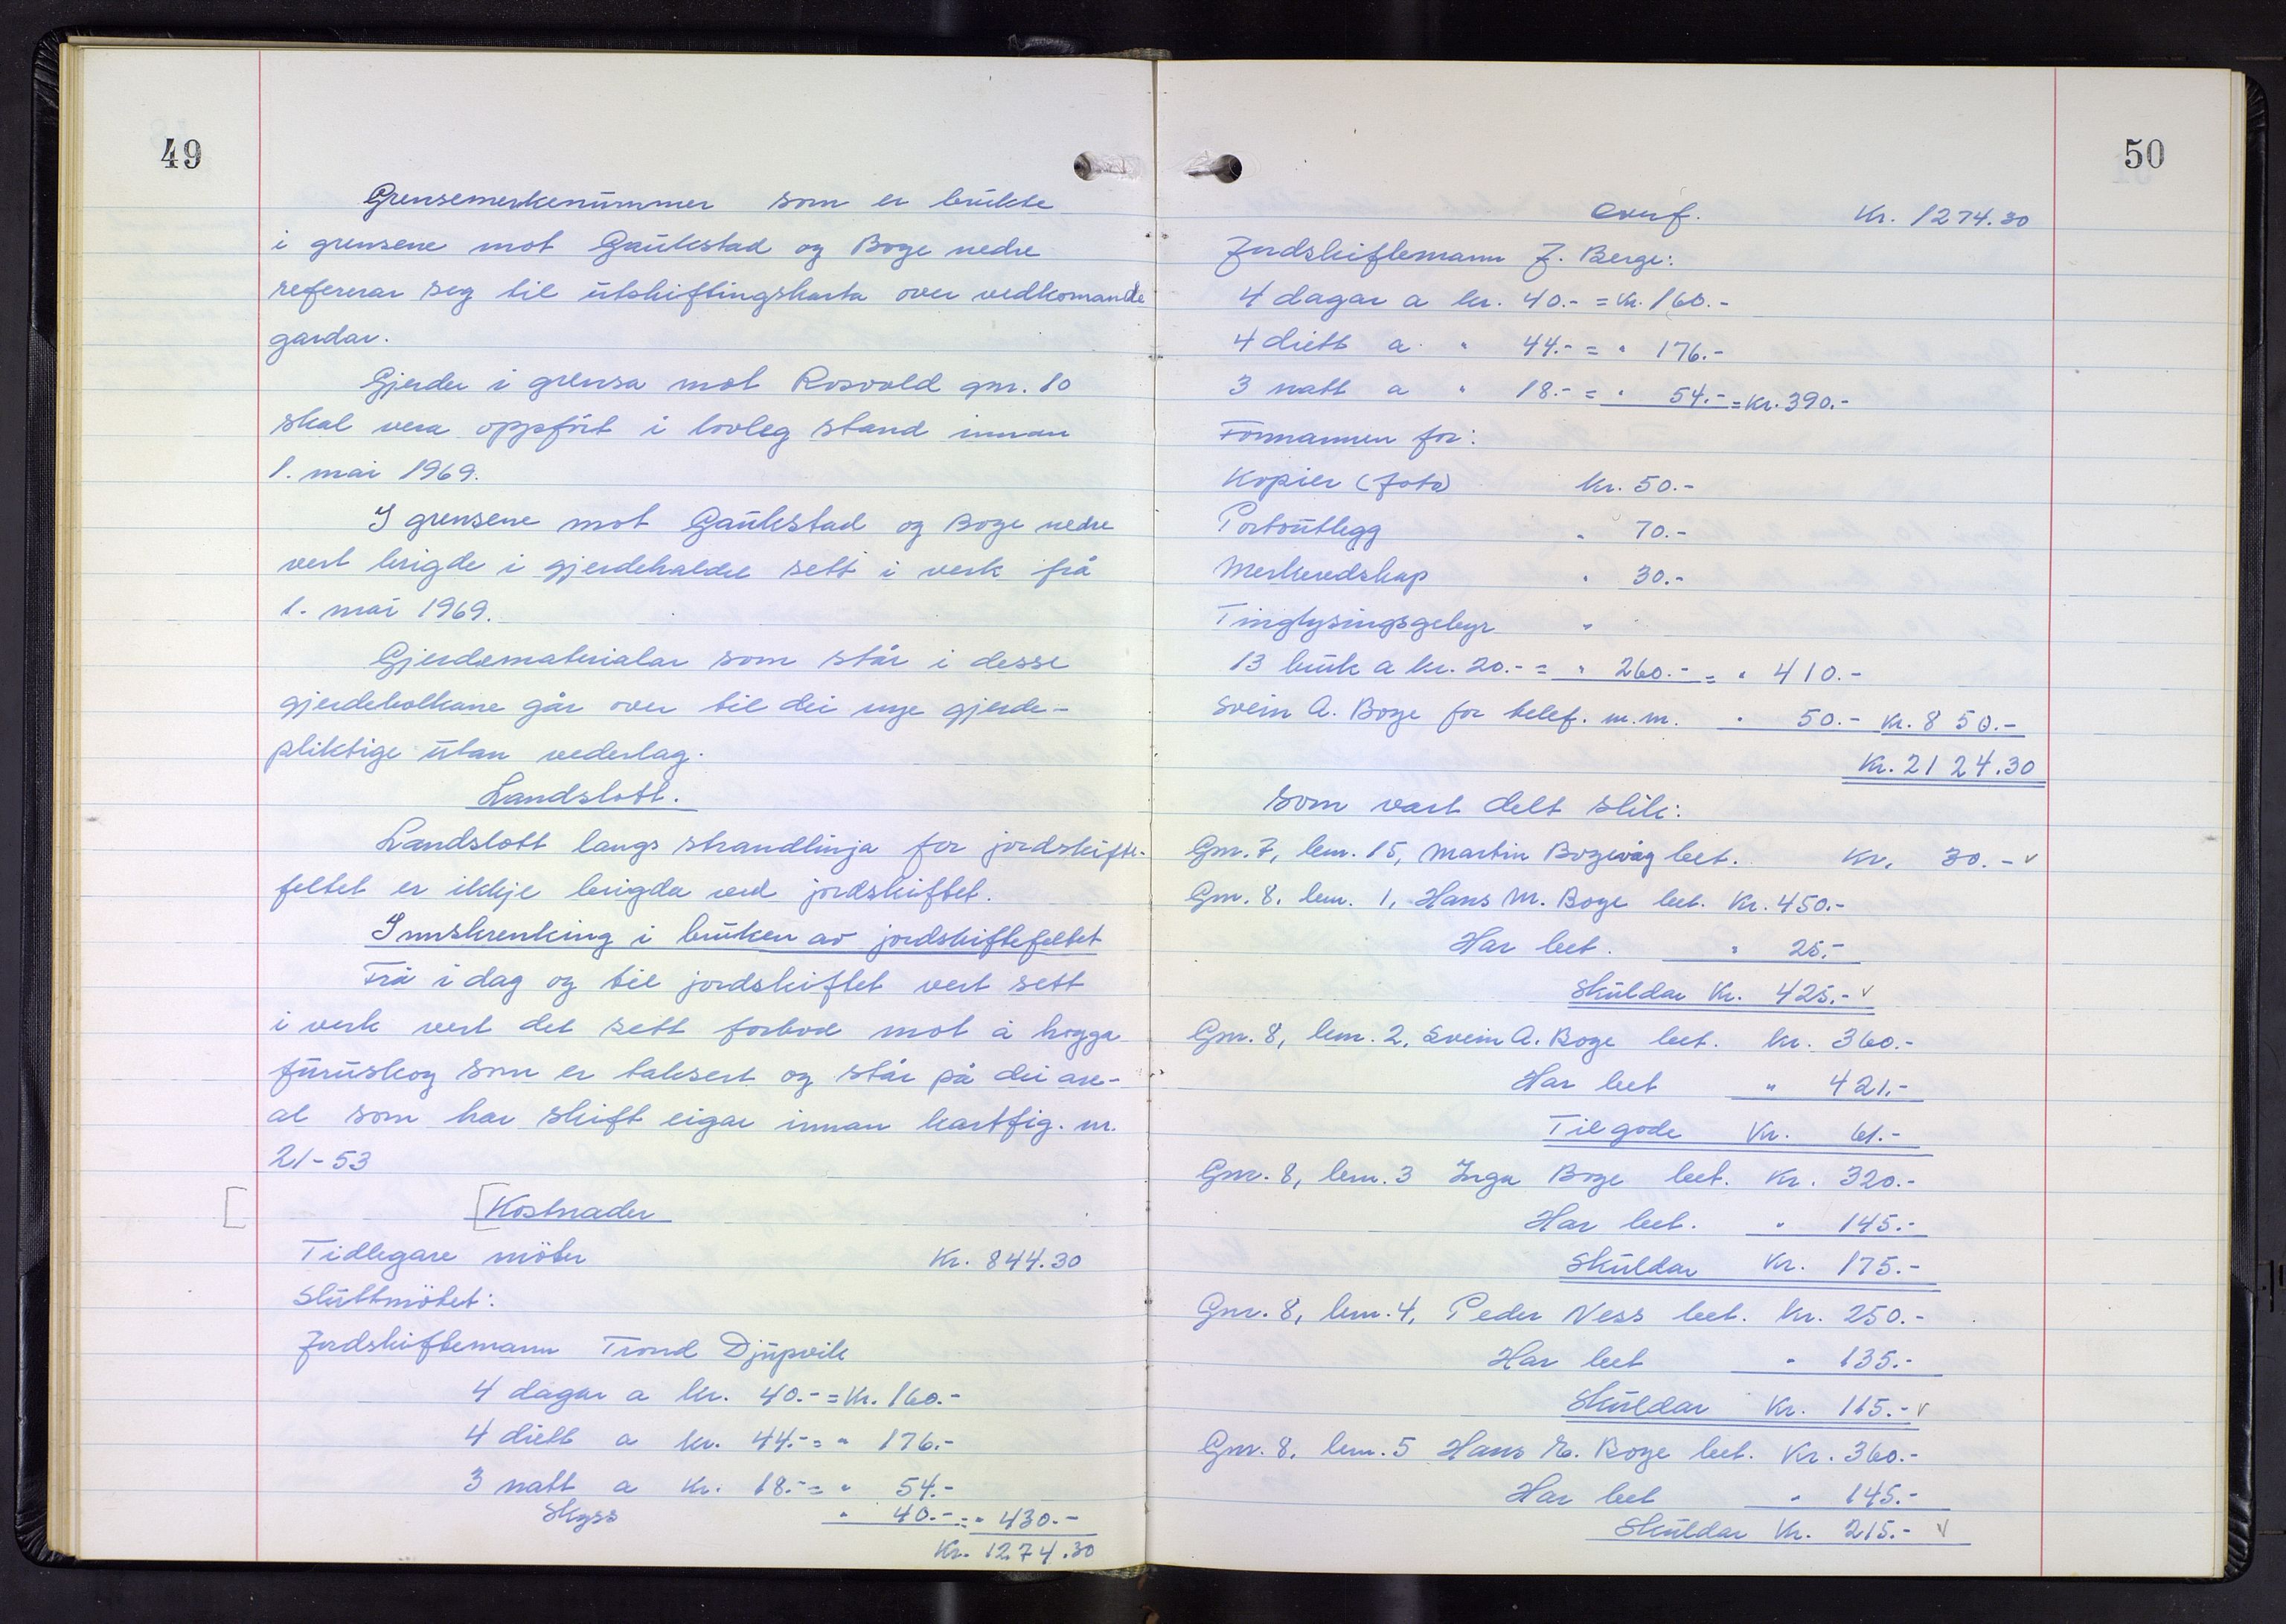 49
Grensemerkenummer som er brukte
i grensene mot Gaukstad og Boge nedre
refererar seg til utskiftingskarta over vedkomande
gardar.
Gjerder i grensa mot Rosvold gnr. 10
skal vera oppført i lovleg stand innan
1. mai 1969.
I grensene mot Gaukstad og Boge nedre
vert brigde i gjerdehaldet sett i verk frå
1. mai 1969.
Gjerdematerialar som står i desse
gjerdebolkane går over til dei nye gjerde-
pliktige utan vederlag.
Landslott.
Landslott langs strandlinja for jordskifte-
feltet er ikkje brigda ved jordskiftet.
Innskrenking i bruken av jordskiftefeltet
Frå i dag og til jordskiftet vert sett
i verk vert det sett forbod mot å hogga
furuskog som er taksert og står på dei are-
al som har skift eigar innan kartfig. nr.
21-53
[ [Kostnader
Tidlegare møter Kr. 844.30
Sluttmøtet:
Jordskiftemann Trond Djupvik
4 dagar a kr. 40.- = Kr. 160.-
4 diett a kr. 44.- = " 176.-
3 natt a kr. 18.- = " 54.-
Skyss " 40.- = " 430.-
Kr. 1274.30
50
Overf. Kr. 1274.30
Jordskiftemann J. Berge:
4 dagar a kr. 40.- = Kr. 160.-
4 diett a " 44.- = " 176.-
3 natt a " 18.- = " 54.- = Kr. 390.-
Formannen for:
Kopier (foto) kr. 50.-
Portoutlegg " 70.-
Merkeredskap " 30.-
Tinglysingsgebyr "
13 bruk a kr. 20.- = " 260.- = " 410.-
Svein A. Boge for telef. m.m. " 50.- Kr. 850.-
Kr. 2124.30
som vart delt slik:
Gnr. 7, bnr. 15, Martin Bogevåg bet. Kr. 30.- v
Gnr. 8, bnr. 1, Hans M. Boge bet. Kr. 450.-
Har bet. " 25.-
Skuldar Kr. 425.- v
Gnr. 8, bnr. 2, Svein A. Boge bet. kr. 360.-
Har bet " 421.-
Til gode Kr. 61.-
Gnr. 8, bnr. 3 Inga Boge bet. Kr. 320.-
Har bet. " 145.-
Skuldar Kr. 175.-
Gnr. 8, bnr. 4, Peder Ness bet. kr. 250.-
Har bet " 135.-
Skuldar Kr. 115.- v
Gnr. 8, bnr. 5 Hans E. Boge bet. Kr. 360.-
Har bet " 145.-
Skuldar Kr. 215.- v